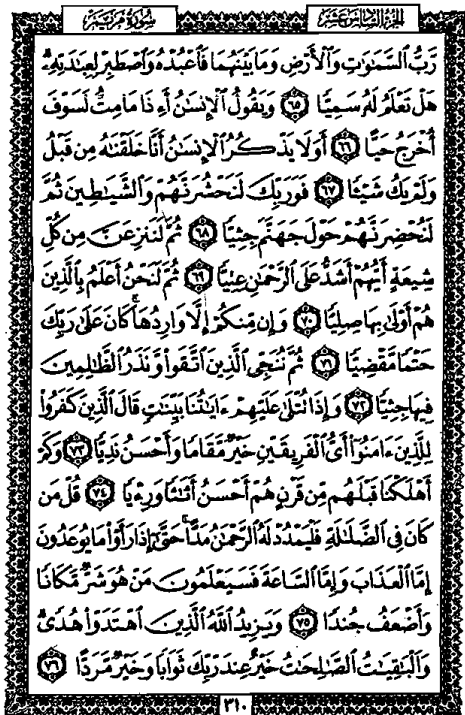 الجزء السادس عشر
سورة مريم
رَّبُّ ٱلسَّمَٰوَٰتِ وَٱلْأَرْضِ وَمَا بَيْنَهُمَا فَٱعْبُدْهُ وَٱصْطَبِرْ لِعِبَٰدَتِهِۦ
هَلْ تَعْلَمُ لَهُۥ سَمِيًّا ٦٥ وَيَقُولُ ٱلْإِنسَٰنُ أَءِذَا مَا مِتُّ لَسَوْفَ
أُخْرَجُ حَيًّا ٦٦ أَوَلَا يَذْكُرُ ٱلْإِنسَٰنُ أَنَّا خَلَقْنَٰهُ مِن قَبْلُ
وَلَمْ يَكُ شَيْـًٔا ٦٧ فَوَرَبِّكَ لَنَحْشُرَنَّهُمْ وَٱلشَّيَٰطِينَ ثُمَّ
لَنُحْضِرَنَّهُمْ حَوْلَ جَهَنَّمَ جِثِيًّا ٦٨ ثُمَّ لَنَنزِعَنَّ مِن كُلِّ
شِيعَةٍ أَيُّهُمْ أَشَدُّ عَلَى ٱلرَّحْمَٰنِ عِتِيًّا ٦٩ ثُمَّ لَنَحْنُ أَعْلَمُ بِٱلَّذِينَ
هُمْ أَوْلَىٰ بِهَا صِلِيًّا ٧٠ وَإِن مِّنكُمْ إِلَّا وَارِدُهَا ۚ كَانَ عَلَىٰ رَبِّكَ
حَتْمًا مَّقْضِيًّا ٧١ ثُمَّ نُنَجِّى ٱلَّذِينَ ٱتَّقَوا۟ وَّنَذَرُ ٱلظَّٰلِمِينَ
فِيهَا جِثِيًّا ٧٢ وَإِذَا تُتْلَىٰ عَلَيْهِمْ ءَايَٰتُنَا بَيِّنَٰتٍ قَالَ ٱلَّذِينَ كَفَرُوا۟
لِلَّذِينَ ءَامَنُوٓا۟ أَىُّ ٱلْفَرِيقَيْنِ خَيْرٌ مَّقَامًا وَأَحْسَنُ نَدِيًّا ٧٣ وَكَمْ
أَهْلَكْنَا قَبْلَهُم مِّن قَرْنٍ هُمْ أَحْسَنُ أَثَٰثًا وَرِءْيًا ٧٤ قُلْ مَن
كَانَ فِى ٱلضَّلَٰلَةِ فَلْيَمْدُدْ لَهُ ٱلرَّحْمَٰنُ مَدًّا ۚ حَتَّىٰٓ إِذَا رَأَوْا۟ مَا يُوعَدُونَ
إِمَّا ٱلْعَذَابَ وَإِمَّا ٱلسَّاعَةَ فَسَيَعْلَمُونَ مَنْ هُوَ شَرٌّ مَّكَانًا
وَأَضْعَفُ جُندًا ٧٥ وَيَزِيدُ ٱللَّهُ ٱلَّذِينَ ٱهْتَدَوْا۟ هُدًى ۗ
وَٱلْبَٰقِيَٰتُ ٱلصَّٰلِحَٰتُ خَيْرٌ عِندَ رَبِّكَ ثَوَابًا وَخَيْرٌ مَّرَدًّا ٧٦
٣١٠